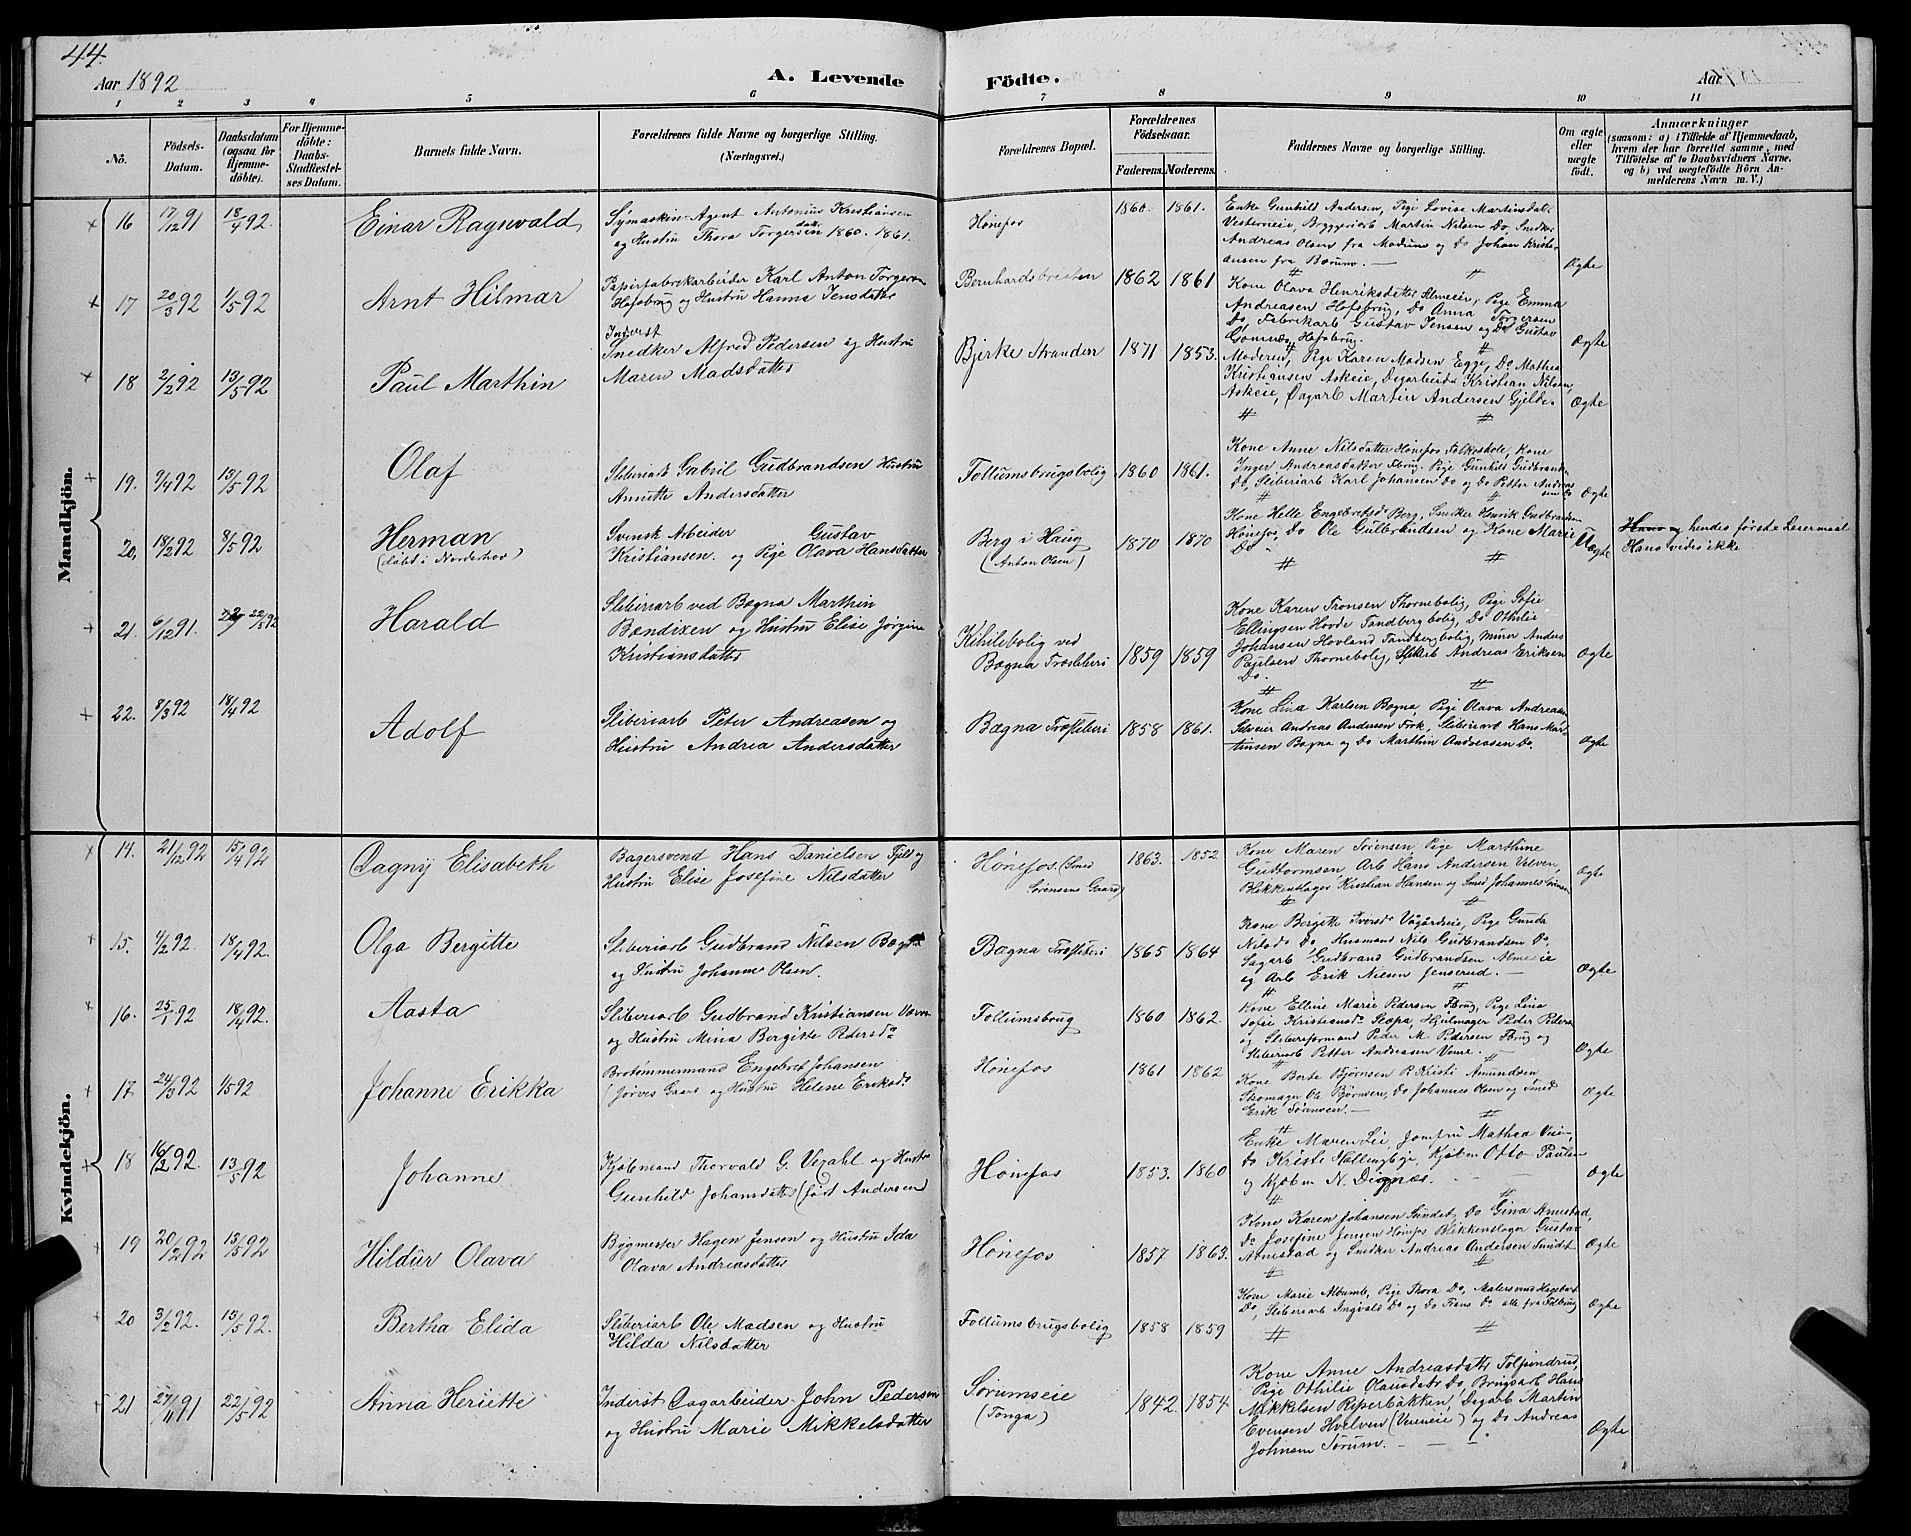 44.
Aar 1892
A. Levende
Födte.
Aar
1 2 3 4 5 6 7 8 9 10 11
No.
Födsels-Datum.
Daabsdatum (ogsaa for Hjemme-döbte).
For Hjemme-döbte: Daabs-Stadfæstel-ses Datum.
Barnets fulde Navn.
Forældrenes fulde Navne og borgerlige Stilling.
(Næringsvei.)
Forældrenes Bopæl.
Forældrenes Födselsaar.
Faderens. Moderens.
Faddernes Navne og borgerlige Stilling.
Om ægte eller uægte födt.
Anmærkninger
(saasom: a) i Tilfælde af Hjemmedaab,
hvem der har forrettet samme, med
Tilföielse af to Daabsvidners Navne.
og b) ved uægtefödte Börn An-
melderens Navn m. V.)
Mandkjön.
16 17/12 91 18/4 92. Einar Ragnvald
Symaskin-Agent Antonius Kristiansen
og Hustru Thora Torgersen 1860. 1861.
Hönefos 1860. 1861.
Enke Gunhild Andersen, Pige Lovise Martinsdat.
Vesterneie, Bryggeriarb Martin Nilsen Do, Snedker
Andreas Olsen fra Modum og Do Johan Kristi-
ansen fra Bærum. —
Ægte
17 20/3 92 1/5 92 Arnt Hilmar
Papirfabrekarbeider Karl Anton Torgersen
Hofsbrug og Hustru Hanna Jensdatter
1862 1861
Kone Olava Henriksdatter Almeier, Pige Emma
Andreasen Hofsbrug, Do Anna Torgersen
Do, Fabrikarb Gustav Jensen og Do Gustav
Gomnæs Hofsbrug.
Ægte
18 2/2 92 13/5 92 Paul Marthin
Inderst
Snedker Alfred Pedersen og Hustru
Maren Madsdatter
Bjerke Stranden 1871 1853.
Moderen, Pige Karen Madsen Egge, Do Mathea
Kristiansen Askeie, Dagarbeider Kristian Nilsen,
Askeie, Dagarb Martin Andersen Gjelde.
Ægte
19. 9/4 92 13/5 92 Olaf
Sliberiarb Gabril Gudbrandsen Hustru
Annette Andersdatter
Follumsbrugsbolig 1860 1861.
Kone Anne Nilsdatter Hönefos Folkeskole, Kone
Inger Andreasdatter Fbrug. Pige Gunhild Gudbrands
Do, Sliberiarb Karl Johansen Do og Do Petter Andreas
sen Do
Ægte
20. 18/2 92 8/5 92 Herman
(döbt i Norderhov)
Svensk Arbeider Gustav
Kristiansen. og Pige Olava Hansdatter
Berg i Haug
(Anton Olsen)
1870 1870
Kone Helle Engebretsd Berg, Snedker Henrik Gudbrandsen
Hönefos, Do Ole Gulbrandsen og Kone Marie
Do
Uægte
Hans og hendes förste Leiermaal
Hans vides ikke
21. 6/12 91. 22/5 92 Harald
Sliberiarb ved Bægna Marthin
Bændixen og Hustru Elise Jörgine
Kristiansdatter
ved
Bægna Træsliberi
1859 1859
Kone Karen Tronsen Thornebolig, Pige Sofie
Ellingsen Hovde Tandbergbolig, Do Othilie
Johansen Hovland Tandbergbolig, Miner Anders
Paulsen Thornebolig, Andreas Eriksen
Do.
Ægte
22. 8/3 92 18/4 92 Adolf
Sliberiarb Peter Andreasen og
Hustru Andrea Andersdatter
Bægna Træsliberi 1858 1861.
Kone Lina Karlsen Bægna, Pige Olava Andreasen
Selveier Andreas Andersen Fosk, Sliberiarb Hans Mar-
tinsen Bægna og Do Marthin Andreassen Do.
Ægte
Kvindekjön.
14. 21/12 92 15/4 92 Dagny Elisabeth
Bagersvend Hans Danielsen Fjeld og
Hustru Elise Josefine Nilsdatter
Hönefos. (Smed
Sörensens Gaard)
1863. 1852
Kone Maren Sörensen, Pige Marthine
Guttormsen, Arb Hans Andersen Velven,
Blikkenslager Kristian Hansen og Smed Johannes Sörensen
Ægte
15. 4/2 92. 18/4 92. Olga Bergitte
Sliberiarb Gudbrand Nilsen Bægna
og Hustru Johanne Olsen.
Bægna Træsliberi 1865 1864
Kone Bergitte Iversd Vågårdeie, Pige Gunda
Nilsd Do, Husmand Nils Gudbrandsen Do,
Sagarb Gudbrand Gudbrandsen Almeie
og Arb Erik Nilsen Jenserud. —
Ægte
16. 25/1 92 18/4 92. Aasta
Sliberiarb Gudbrand Kristiansen
og Hustru Mina Bergitte Pedersd
Follumsbrug 1860 1862.
Kone Elline Marie Pedersen Fbrug, Pige Lina
Sofie Kristiansd. Skapa, Hjulmager Peder Peders
og Sliberiformand Peder M. Pedersen Fbrug og
Sliberiarb Petter Andreasen Veme. —
Ægte
17. 24/3 92 1/5 92 Johanne Erikka
Brotömmermand Engebret Johansen
(Jörves Gaard og Hustru Helene Eriksd
Hönefos 1861 1862
Kone Berte Björnsen P. Kristi Amundsen
Skomager Ole Björnsen, Do Johannes Olsen og Smed
Erik Sörensen. —
Ægte
18 16/2 92. 13/5 92 Johanne
Kjöbmand Thorvald G. Vegahl og Hustru
Gunhild Johansdatter (født Andersen)
Hönefos 1853. 1860
Enke Maren Lie, Jomfru Mathea Veien,
Do Kristi Hallingbye, Kjöbm Otto Paulsen
og Kjöbm N. Dignæs.
Ægte
19 20/2 92 13/5 92 Hildur Olava
Bygmester Hagen Jensen og Hustru Ida
Olava Andreasdatter
Hönefos 1857 1863.
Kone Karen Johansen Sundet, Do Gina Amestad,
Do Josefine Jensen Hönefos, Blikkenslager Gustav
Amestad og Snedker Andreas Andersen Sundt
Ægte
20 3/2 92. 13/5 92. Bertha Elida
Sliberiarb Ole Madsen og Hustru
Hilda Nilsdatter
Follumsbrugsbolig 1858 1859
Kone Marie Albumb, Pige Thora Do, Malersvend Hagebart
Do, Sliberiarb Ingvald Do og Do Frans Do alle fra Folbrug
Ægte
21 27/4 91 22/5 92 Anna Heriette
Inderst Dagarbeider John Pedersen
og Hustru Marie Mikkelsdatter
Sörumseie
(Tonga)
1842. 1854.
Kone Anne Andreasdatter Tolpindrud,
Pige Othilie Olausdatter Do, Brugsarb Hans
Mikkelsen Riperbakken, Dagarb Martin
Evensen Hvelven (Veieneie) og Do Andreas
Johnsen Sörum. —
Ægte